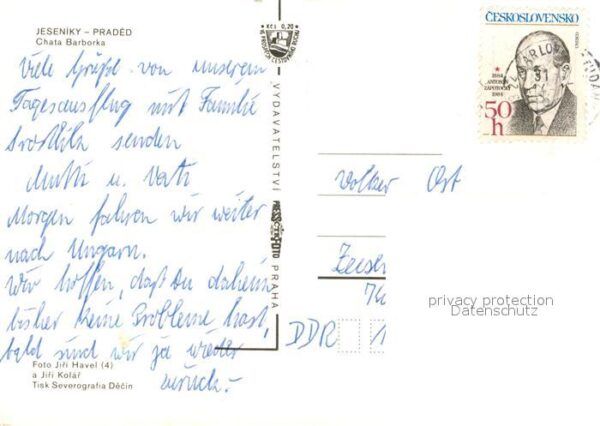 JESENÍKY – PRADĚD
Chata Barborka
Viele Grüße von unserem
Tagesausflug mit Familie
senden
Mutti u. Vati
Morgen fahren wir weiter
nach Ungarn.
Wir hoffen, daß Du daheim
bisher keine Probleme hast,
bald sind wir ja wieder
zurück.-
Foto Jiří Havel (4)
a Jiří Kolář
Tisk Severografia Děčín
Kčs 0,20
VYDAVATELSTVÍ
PRESSFOTO
PRAHA
ČESKOSLOVENSKO
1884
ANTONÍN
ZÁPOTOCKÝ
1984
50
h
31
Volker Ost
DDR
privacy protection
Datenschutz